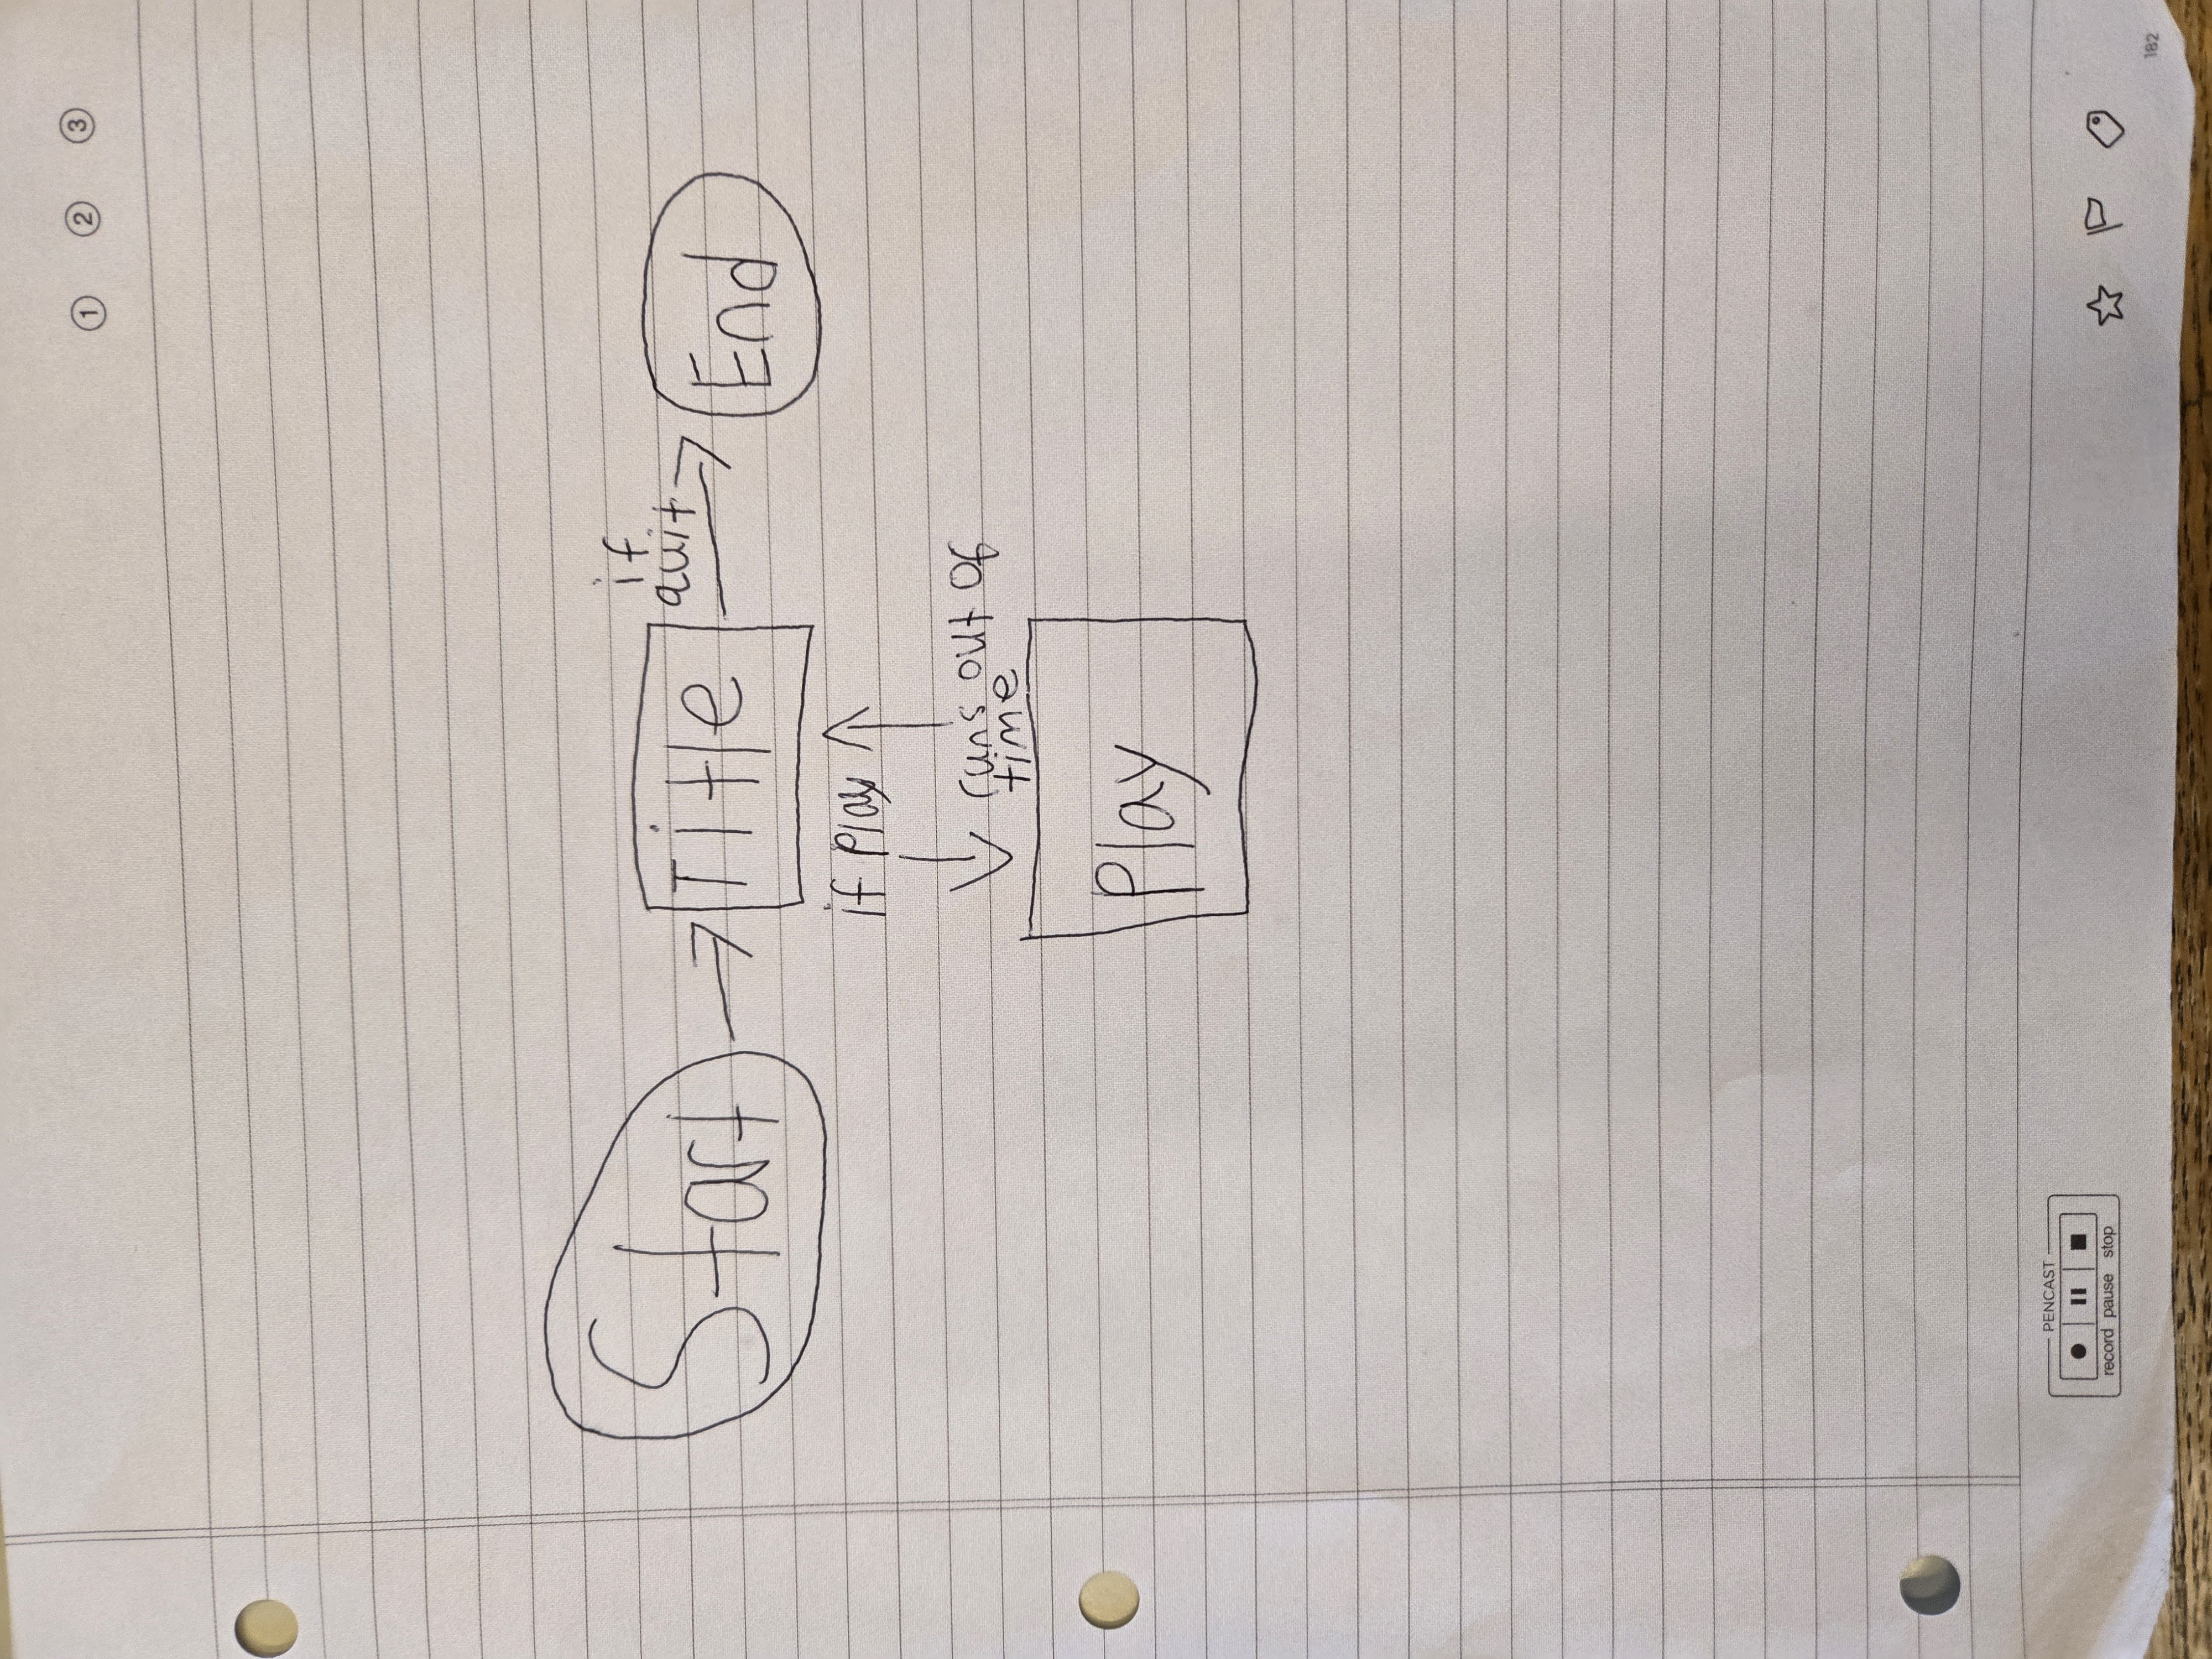 ① ② ③
Start
Title
if
quit
End
if Play
runs out of
time
Play
PENCAST
record pause stop
182